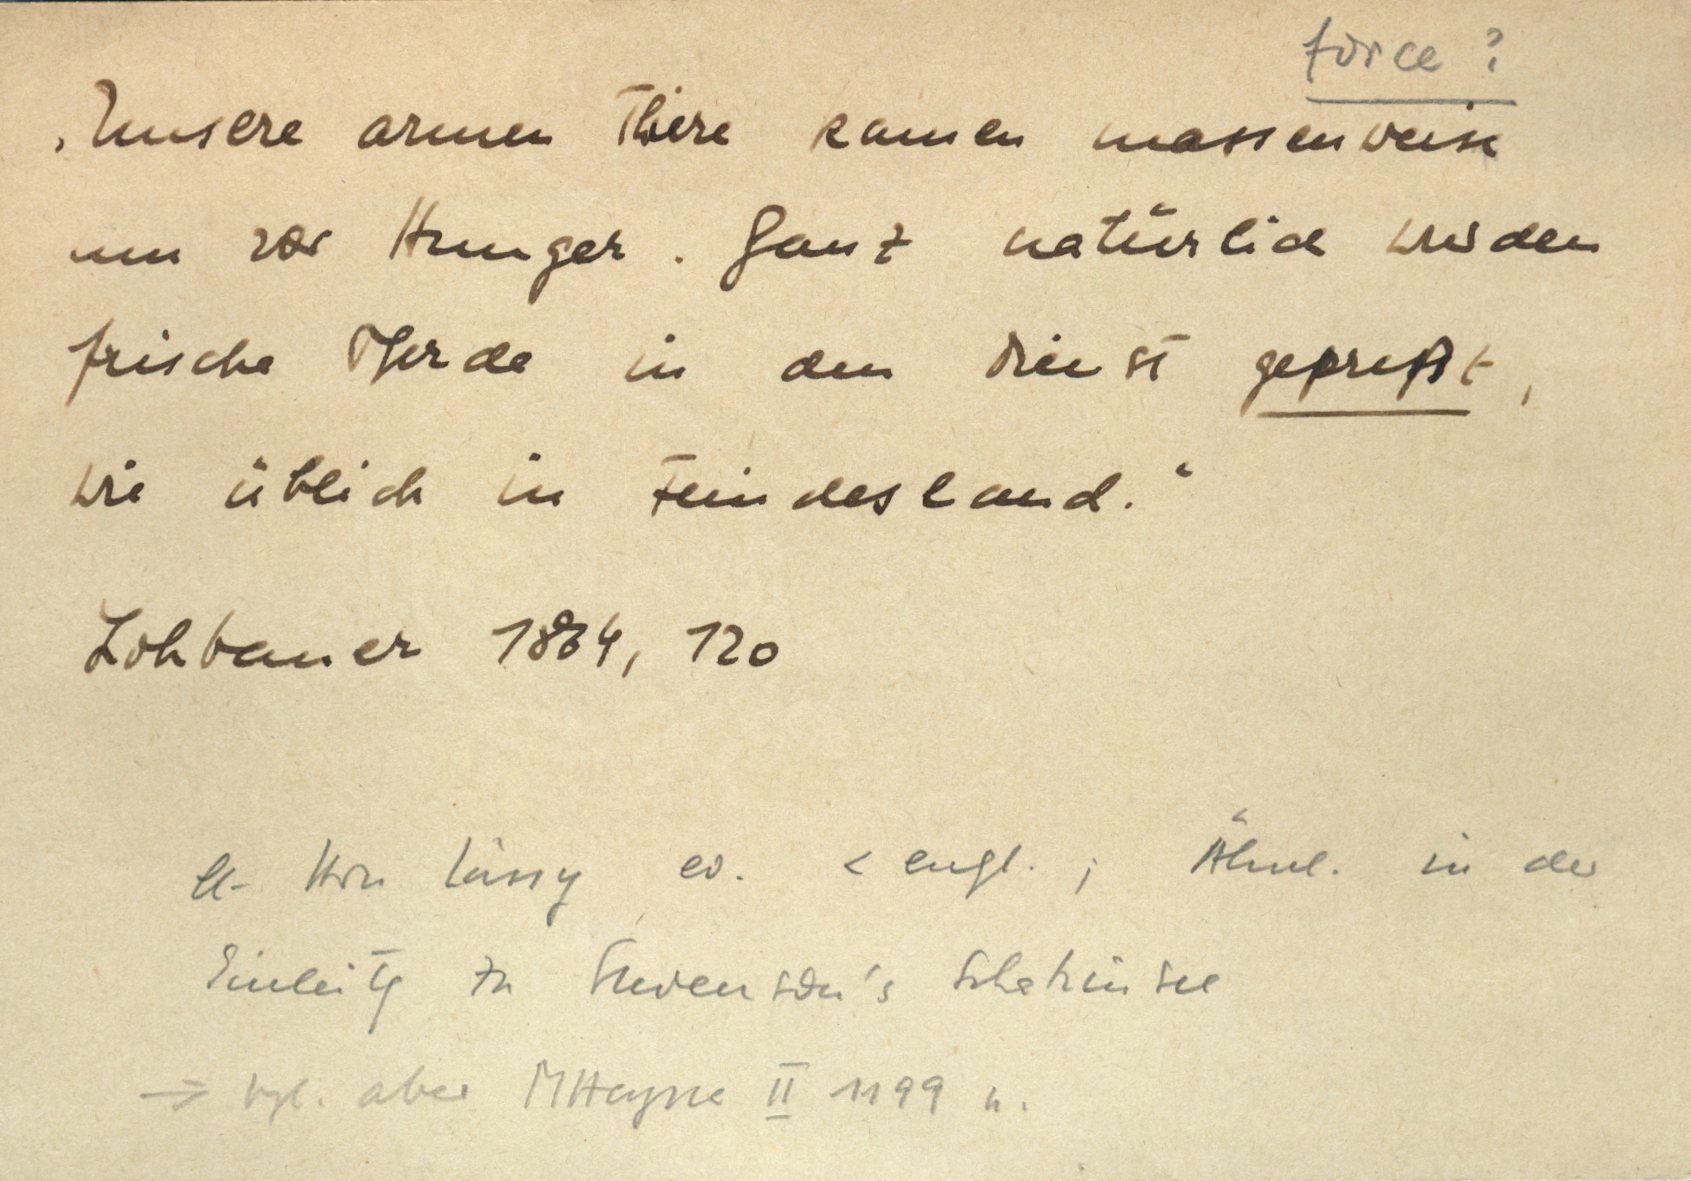 force?
„Unsere armen Thiere kamen massenweise
um vor Hunger. Ganz natürlich wurden
frische Pferde in den Dienst gepreßt,
wie üblich in Feindesland.“
Lohbauer 1864, 120
lt. Hrn ev. < engl.; Ähnl. in der
Einleitg zu Stevenson's Schatzinsel
→ vgl. aber MHeyne II 1199 u.